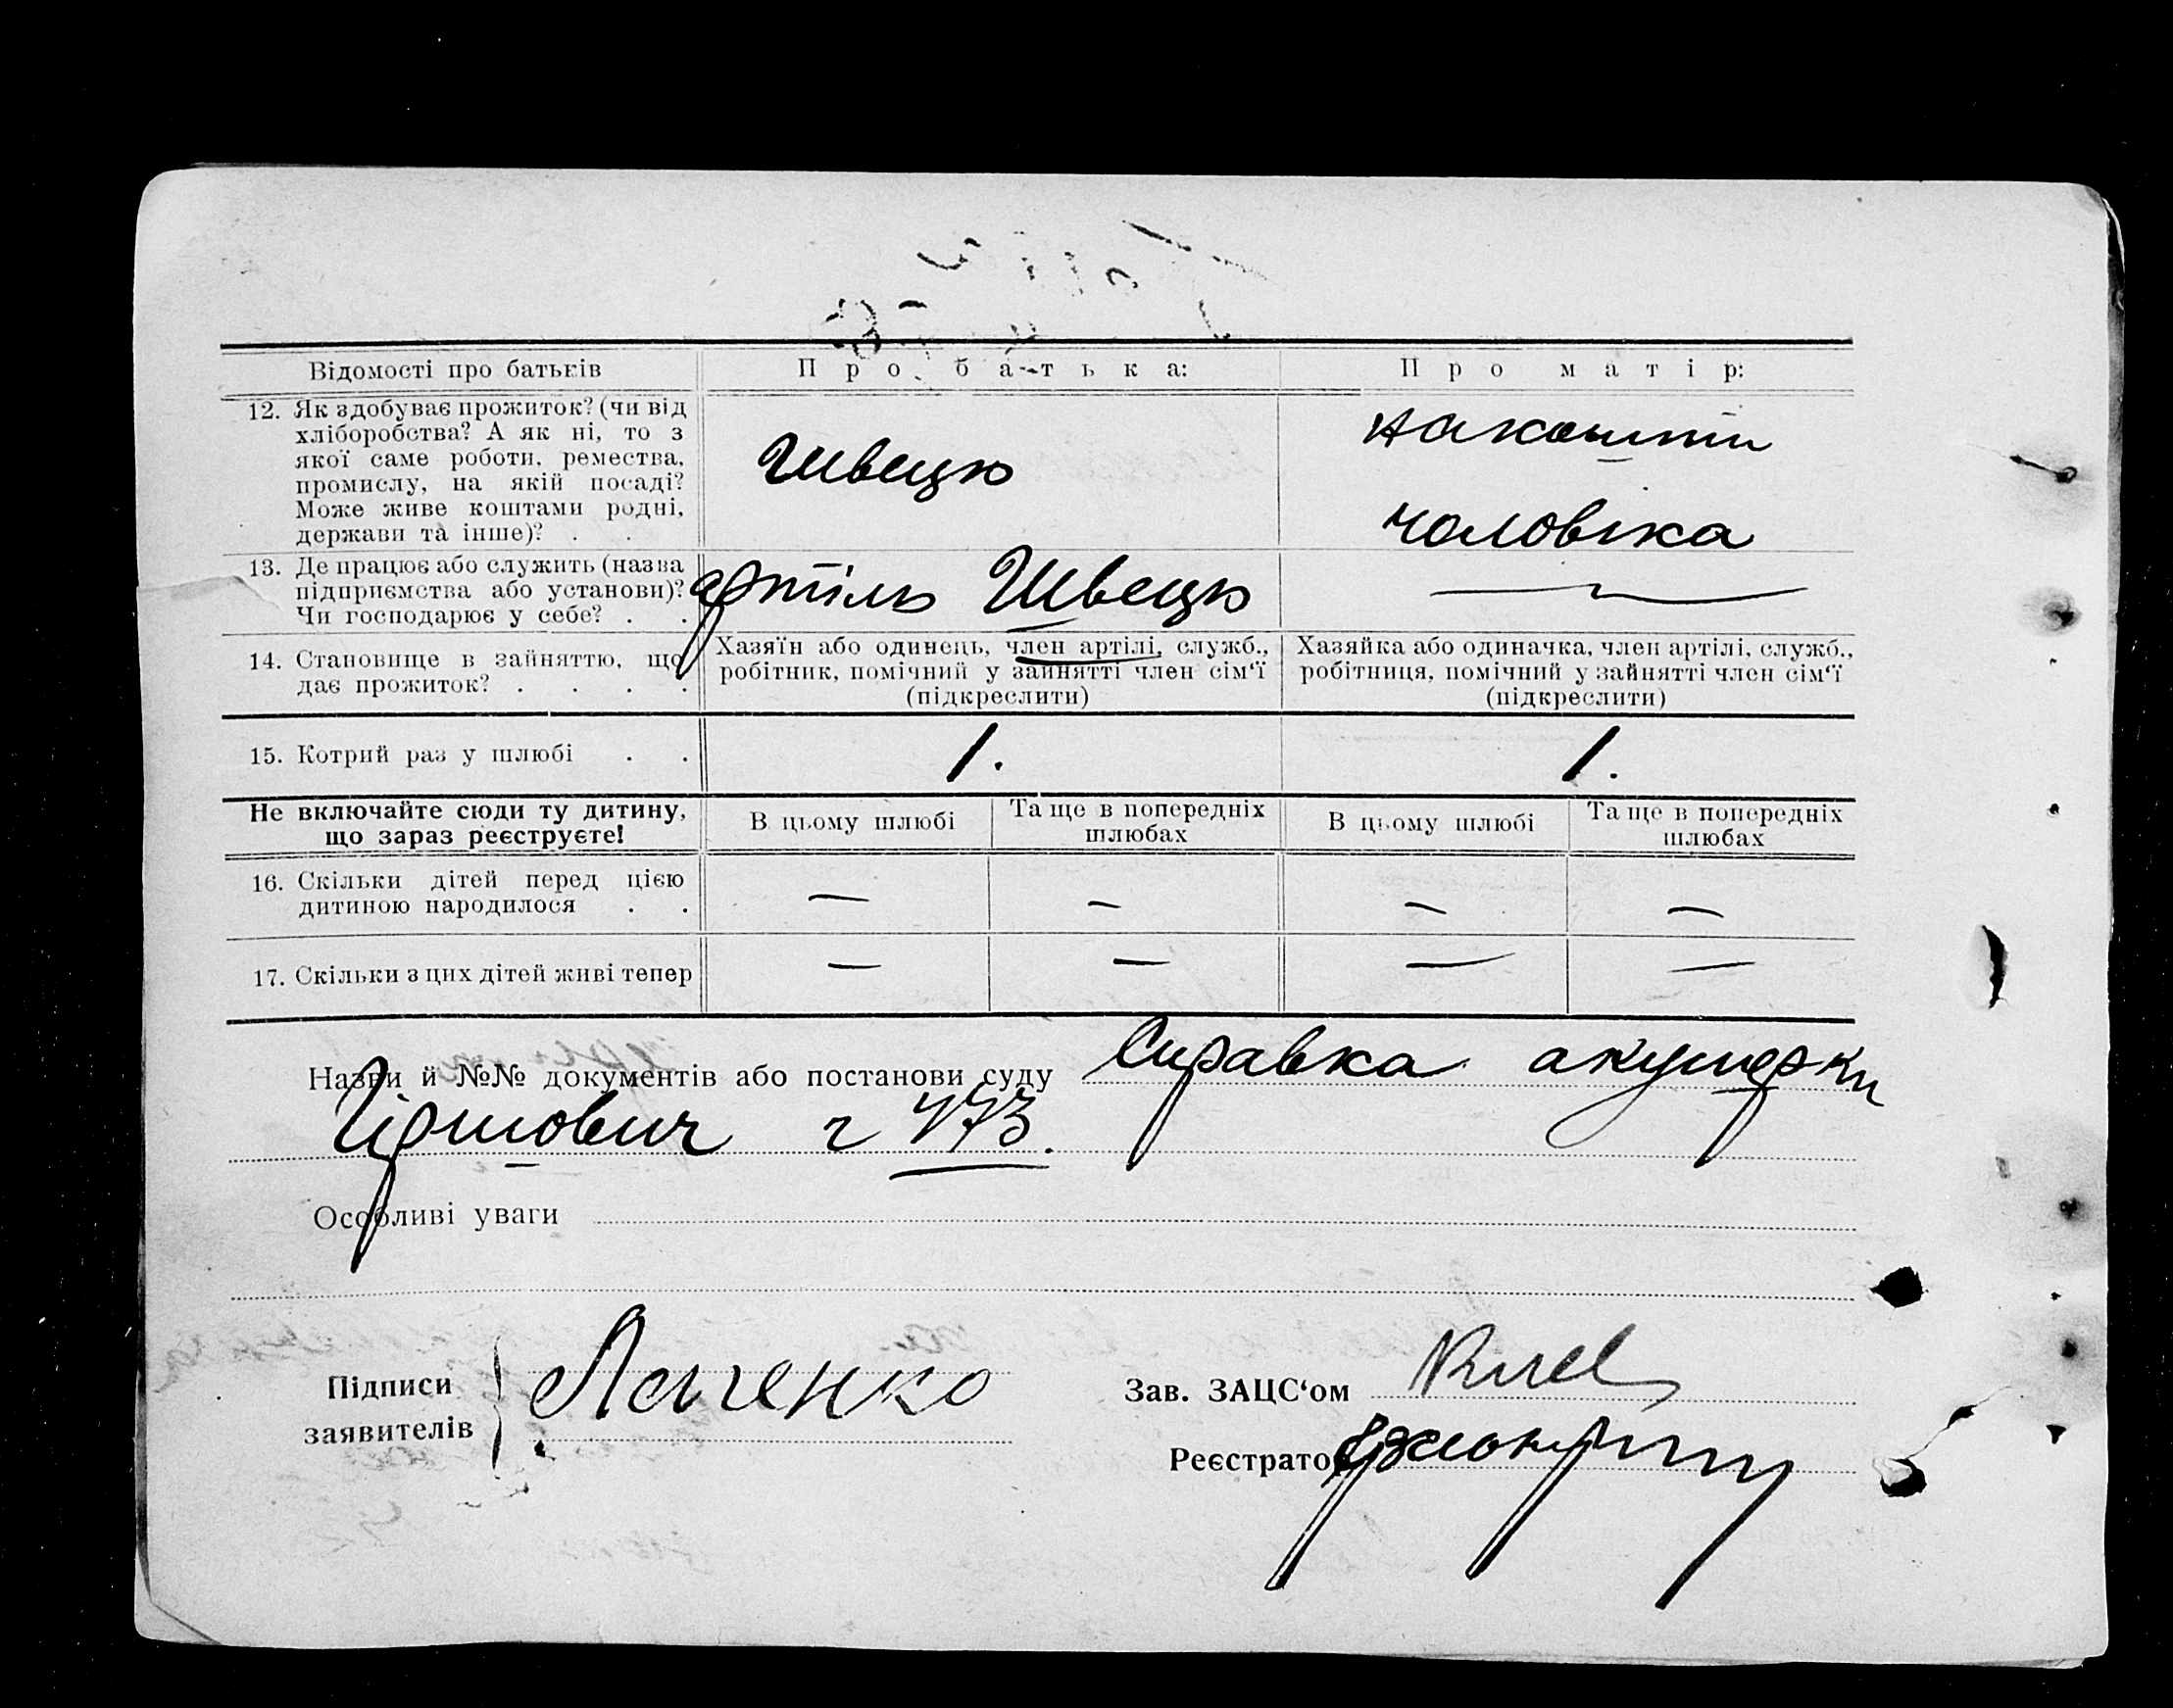 Відомості про батьків
Про батька:
Про матір:
12. Як здобуває прожиток? (чи від
хліборобства? А як ні, то з
якої саме роботи, ремества,
промислу, на якій посаді?
Може живе коштами родні,
держави та інше)? . .
Швець
на кошти
чоловіка
13. Де працює або служить (назва
підприємства або установи)?
Чи господарює у себе? . .
артіль Швець
14. Становище в зайняттю, що
дає прожиток? . . . .
Хазяїн або одинець, член артілі, служб.,
робітник, помічний у зайнятті член сім‘ї
(підкреслити)
Хазяйка або одиначка, член артілі, служб.,
робітниця, помічний у зайнятті член сім‘ї
(підкреслити)
15. Котрий раз у шлюбі . .
1.
1.
Не включайте сюди ту дитину,
що зараз реєструєте!
В цьому шлюбі
Та ще в попередніх
шлюбах
В цьому шлюбі
Та ще в попередніх
шлюбах
16. Скільки дітей перед цією
дитиною народилося . .
— — — —
17. Скільки з цих дітей живі тепер
— — — —
Назви й №№ документів або постанови суду Справка акушерки
473.
Особливі уваги
Підписи
заявителів
Зав. ЗАЦС‘ом
Реєстратор